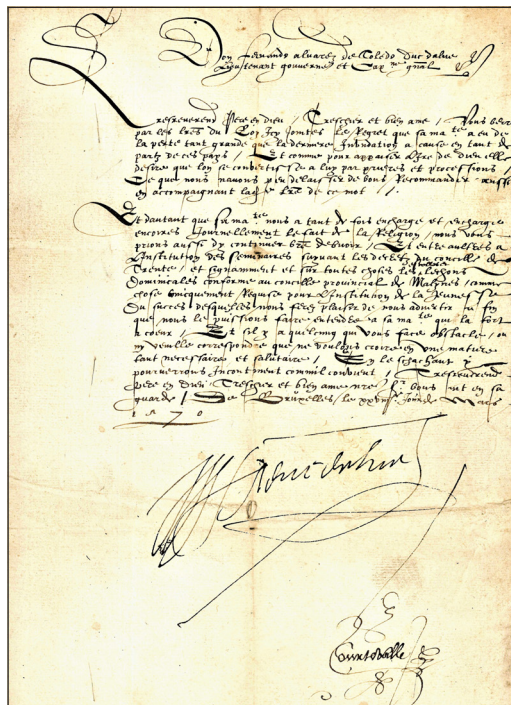 Don Fernando alvarez de Toledo Duc dalve
Lieutenant gouverneur et Cap.ne gnal
Tresreverend Pere en dieu / Treschier et bien ame / Vous verrez
par les lres du Roy Icy Jointes le Regret que sa ma.te a eu de
la perte tant grande que la derniere Inundation a cause en tant de
partz de ces pays / Et comme pour appaiser l'Ire de dieu elle
desire que lon se convertisse a luy par prieres et processions /
Ce que nous navons peu delaisser de vous Recommander aussi
en accompaignant lad.e lre de ce mot /.
Et dautant que sa ma.te nous a tant de fois encharge et encharge
encoires Journellement le fait de la Religion / nous vous
prions aussi dy continuer v.re debvoir / Et entre aultres a
Linstitution des seminaires suyvant les decretz du concille de
Trente / et signamment et sur toutes choses les leschons
Dominicales conforme au concille provincial de Malynes / comme
chose uniquement Requise pour Linstitution de la Jeunesse
Du succes desquelles nous serez plaisir de nous advertir affin
que nous le puissions faire entendre a sa ma.te que la fort
a coeur / Et sil y a quelcung qui vous face obstacle / ou
ny veulle correspondre que ne voulons croire en une matiere
tant necessaire et salutaire / En le sachant y
pourverrons Incontinent comme il convient / Tresreverend
pere en dieu Treschier et bien ame n.re s.r vous ait en sa
garde / De Bruxelles / le xxviij.e Jour de Mars
1570
F A duc dalve
Courtewille